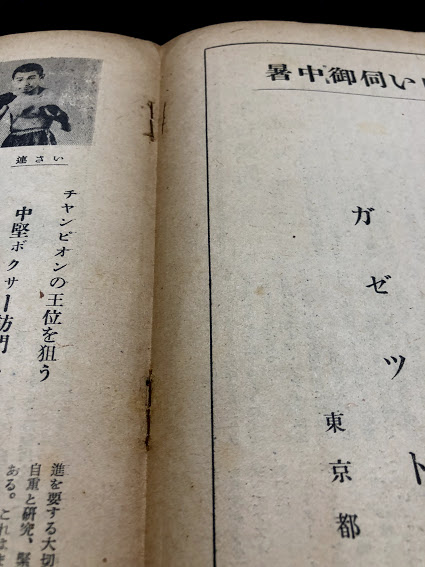 暑中御伺い
ガゼット
東京都
いさ連
チャンピオンの王位を狙う
中堅ボクサー訪問
進を要する大切
自重と研究、緊
ある。これは